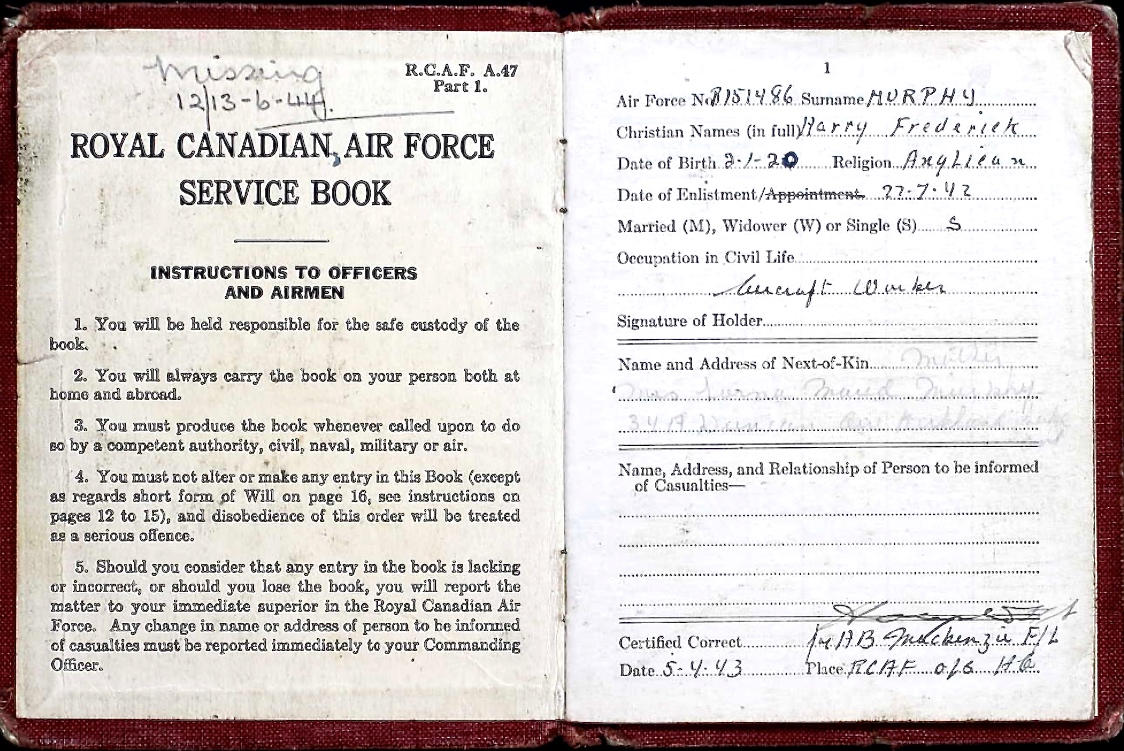 Missing
12/13-6-44.
R.C.A.F. A.47
Part 1.
ROYAL CANADIAN AIR FORCE
SERVICE BOOK
INSTRUCTIONS TO OFFICERS
AND AIRMEN
1. You will be held responsible for the safe custody of the
book.
2. You will always carry the book on your person both at
home and abroad.
3. You must produce the book whenever called upon to do
so by a competent authority, civil, naval, military or air.
4. You must not alter or make any entry in this Book (except
as regards short form of Will on page 16, see instructions on
pages 12 to 15), and disobedience of this order will be treated
as a serious offence.
5. Should you consider that any entry in the book is lacking
or incorrect, or should you lose the book, you will report the
matter to your immediate superior in the Royal Canadian Air
Force. Any change in name or address of person to be informed
of casualties must be reported immediately to your Commanding
Officer.
1
Air Force No. R151486 Surname MURPHY
Christian Names (in full) Harry Frederick
Date of Birth 2-1-20 Religion Anglican
Date of Enlistment/Appointment. 22-7-42
Married (M), Widower (W) or Single (S) S
Occupation in Civil Life
Aircraft Worker
Signature of Holder
Name and Address of Next-of-Kin Mother
Mrs Maud Murphy
34A
Name, Address, and Relationship of Person to be informed
of Casualties—
Certified Correct AB Mackenzie F/L
Date 5-4-43 Place RCAF o/s HQ